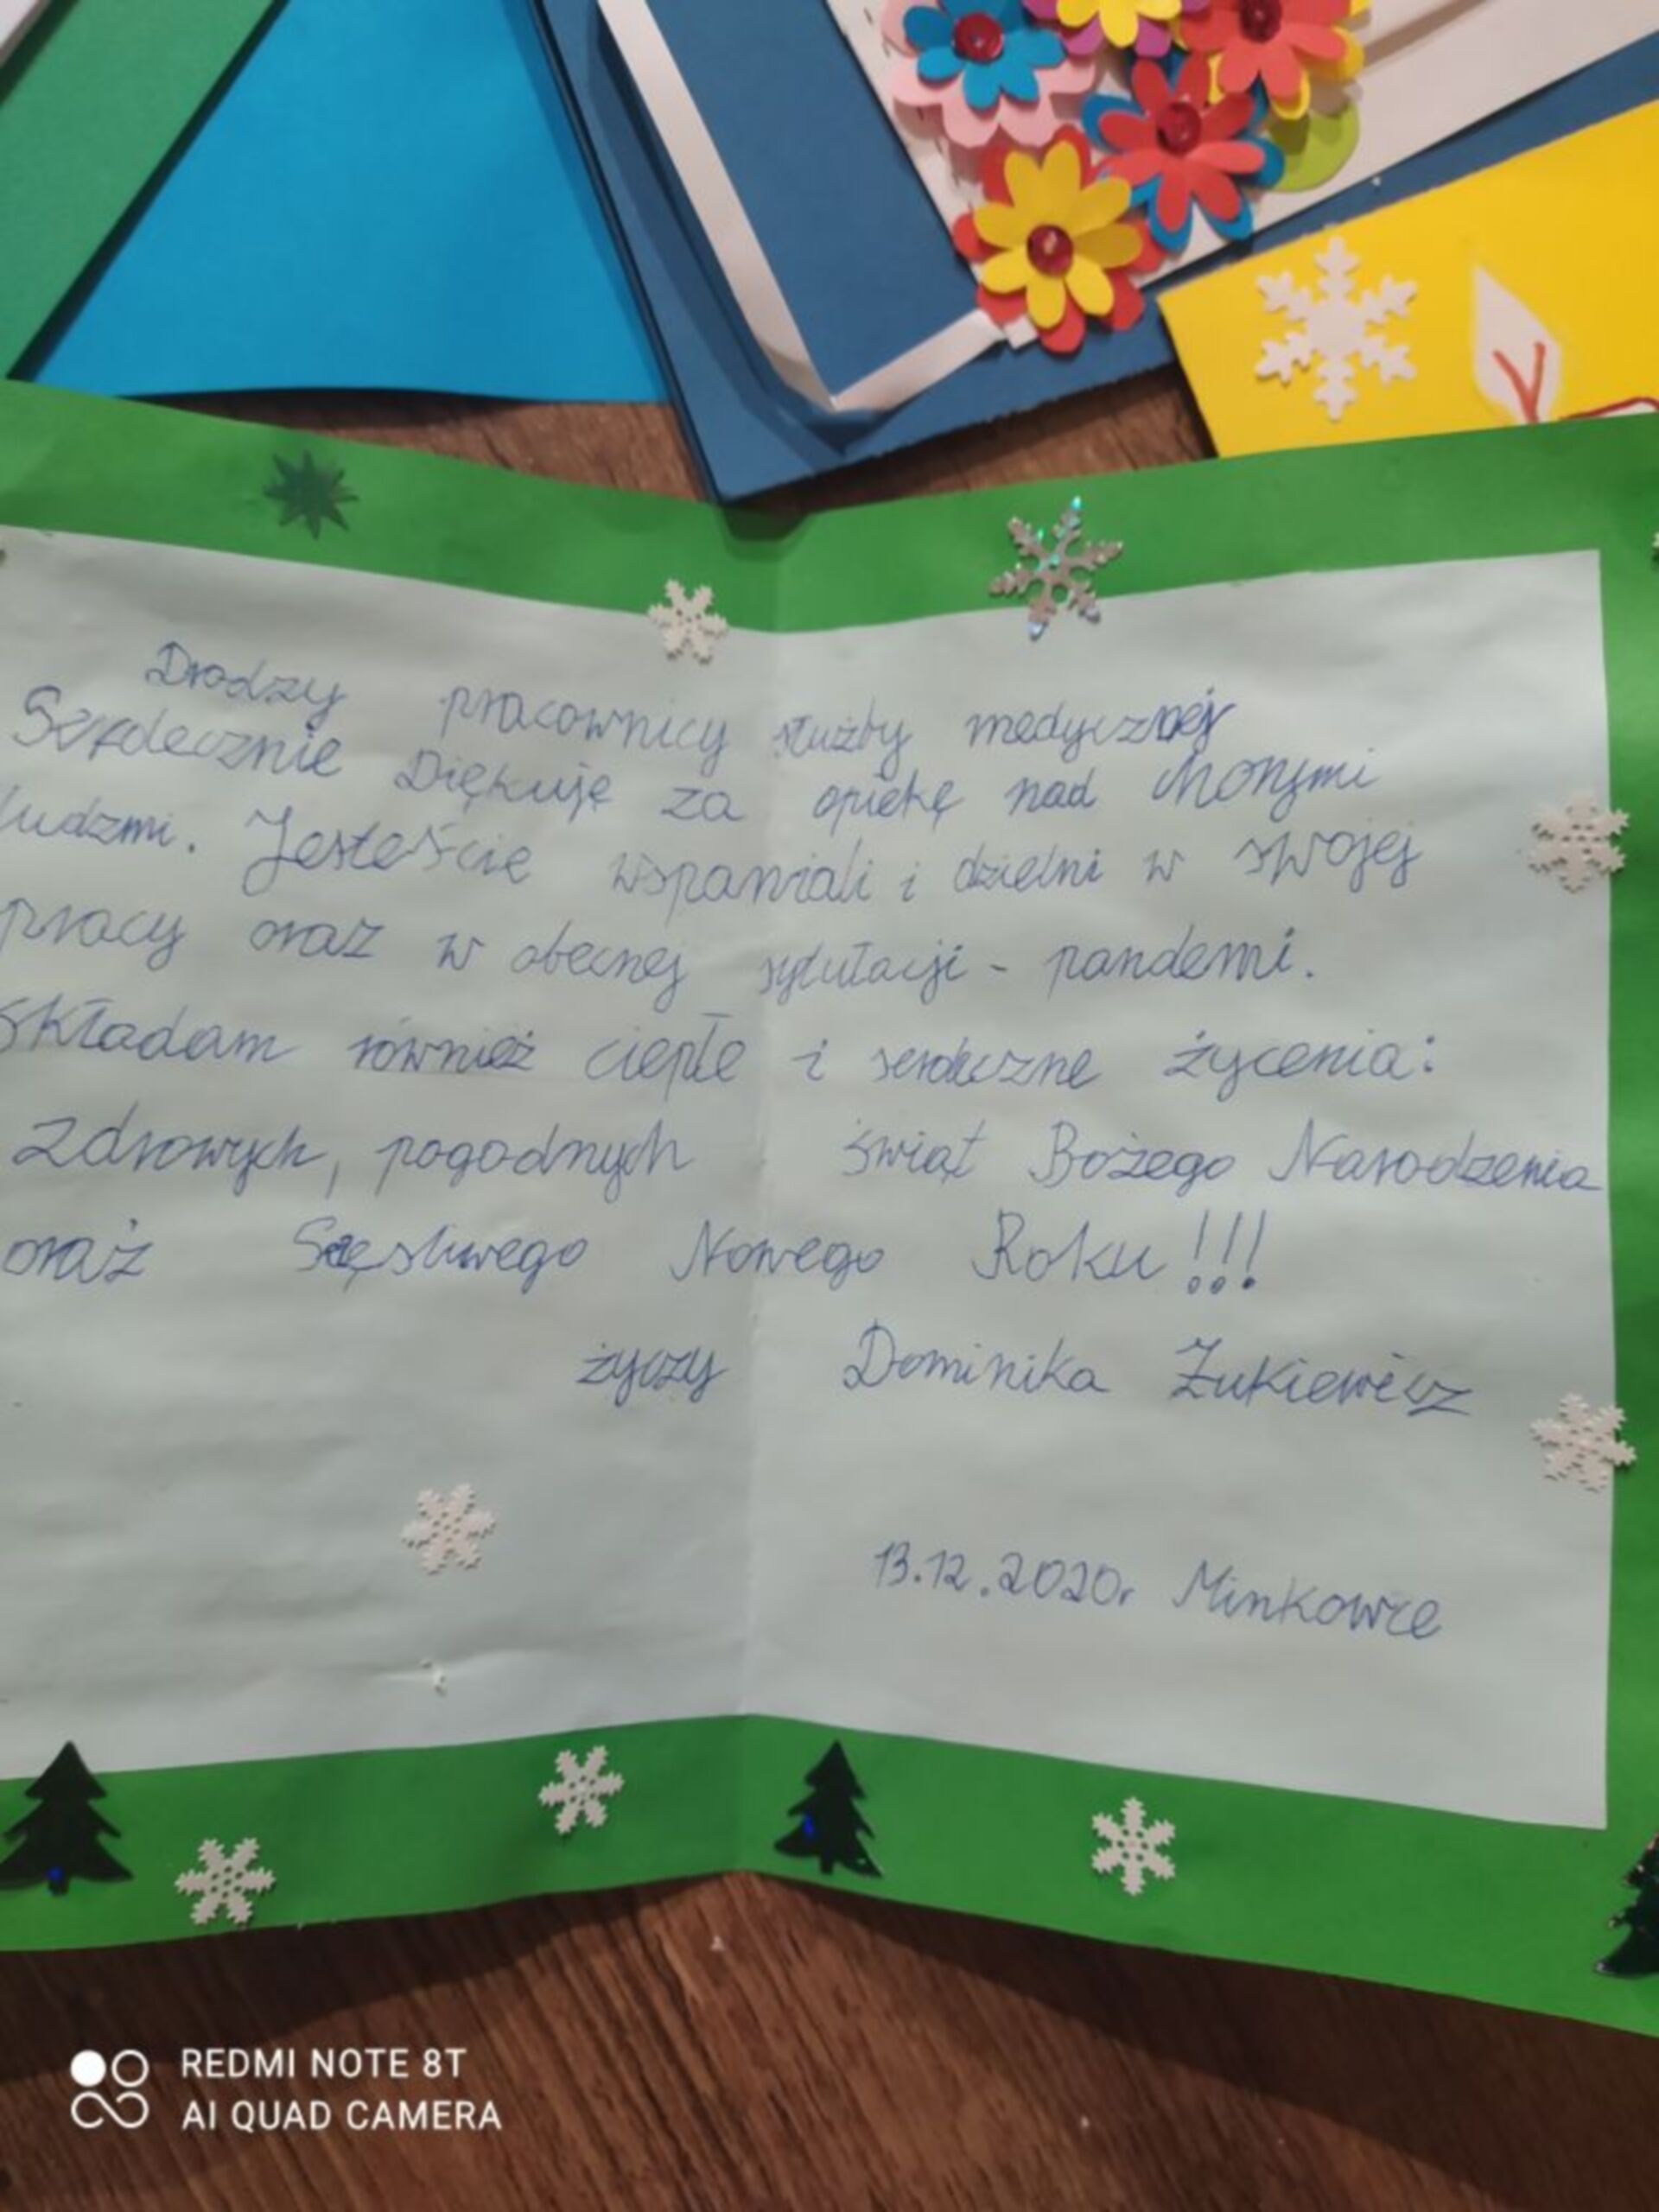 Drodzy pracownicy służby medycznej
Serdecznie Dziękuję za opiekę nad chorymi
ludzmi. Jesteście wspaniali i dzielni w swojej
pracy oraz w obecnej sytułacji - pandemi.
Składam również ciepłe i serdeczne życenia:
Zdrowych, pogodnych świąt Bożego Narodzenia
oraz Szczęsliwego Nowego Roku!!!
życzy Dominika Żukiewicz
13.12.2020r Minkowce
REDMI NOTE 8T
AI QUAD CAMERA